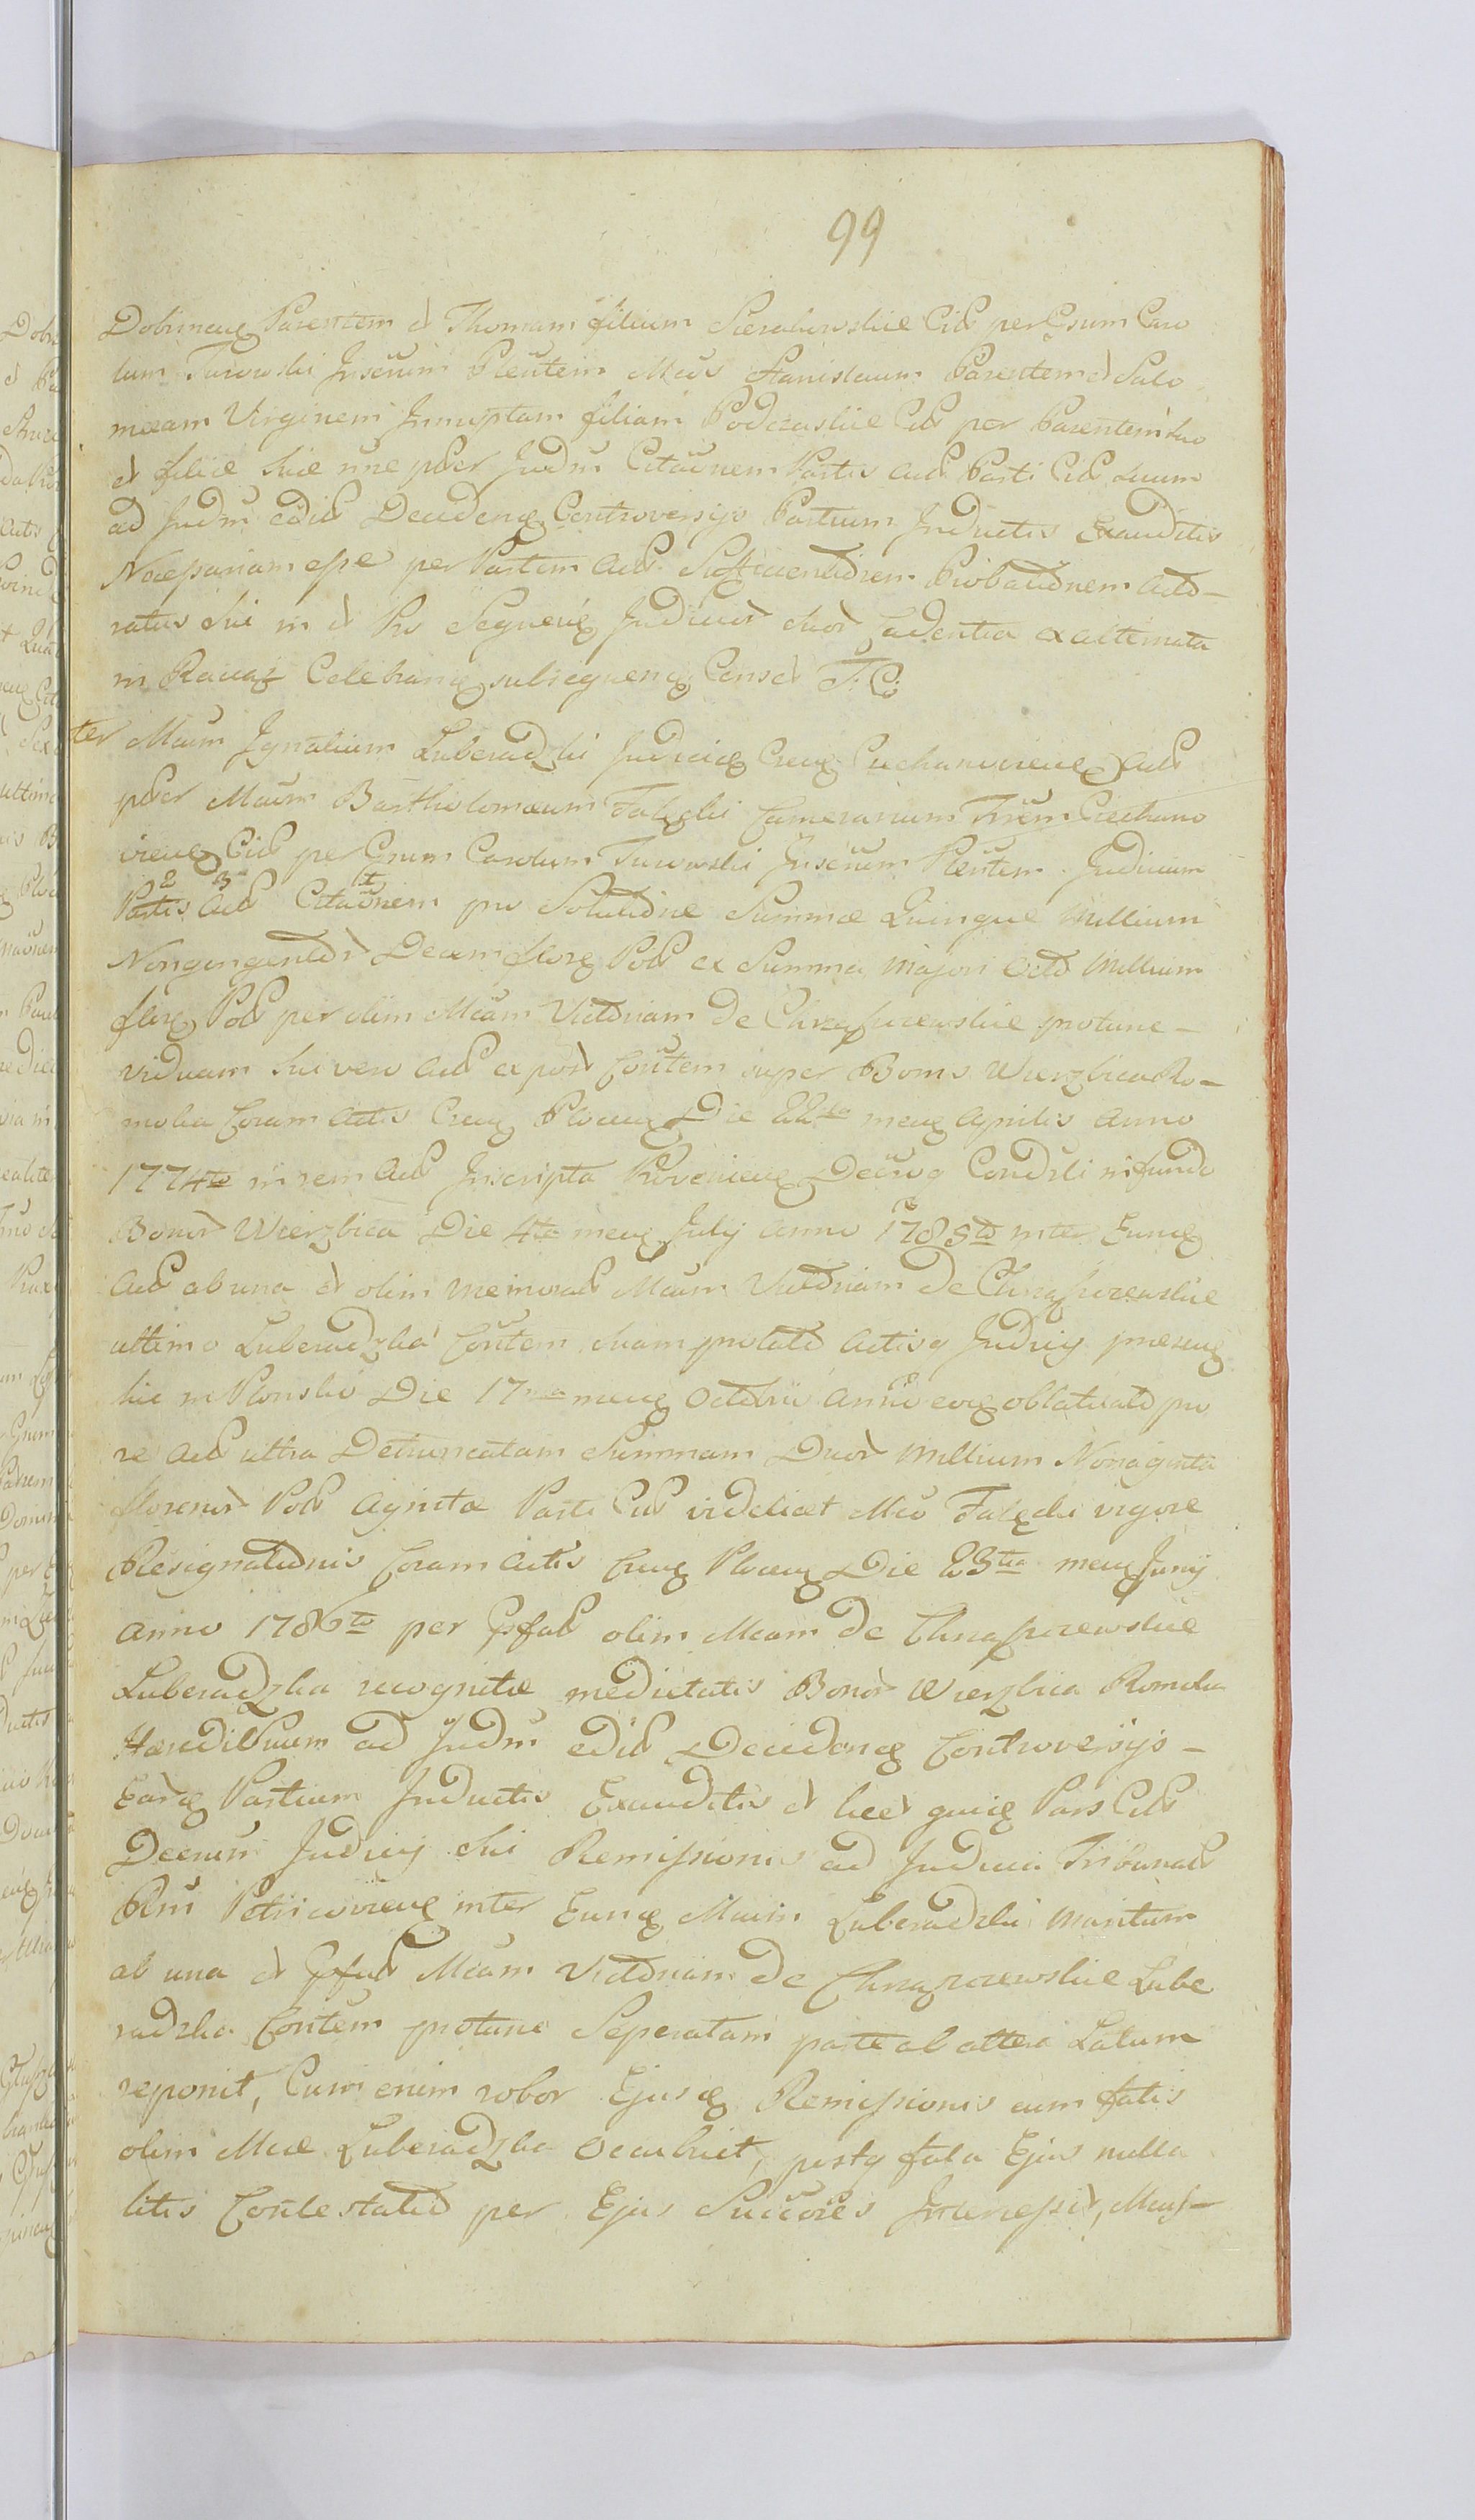 99
Dobrinen Parentem et Thomam filium Sierakowskie Citt per Gsum Caro
lum Turowski Juscrum Plentem Mcos Stanislaum Parentem et Salo
meam Virginem Innuptam filiam Podczaskie Citt per Parentem suo
et filiae suae nne pttr Judm Citaonem Partis Actt Parti Citt suum
ad Judm edit Deciden Controversiis Partium Inductis Exauditis
Necessariam esse per Partem Actt Probationem Acto-
ratus sui in et Pro Sequen Judicior suor cadentia ex alternata
in Raciąż Celebran subsequen Censet T: C:
ter Mcum Ignatium Luberadzki Judicem Cren Ciechanovien Actt
pttr Mcum Bartholomaeum Falęcki Camerarium Trrem Ciechano
vien Citt per Gsum Carolum Turowski Juscrum Plentem Judicium
2 3 1
Partis Actt Citaonem pro Solutione Summae Quinque Millium
Nongentor Decem floren Poll ex Summa majori Octo Millium
floren Poll per olim Mcam Victoriam de Chrapczewskie protunc -
viduam sui vero Actt ex post Contem super Bonis Wierzbica Ro-
molia Coram Actis Cren Plocen Die 22da men Aprilis Anno
1774to in rem Actt Inscripta Provenien Decroq Condicti in fundo
Bonor Wierzbica Die 4ta men July Anno 1785to inter Eund
Actt ab una et olim memorat Mcam Victoriam de Chrapczewskie
ultimo Luberadzka Contem suam prolato Actisq Judicij praesen
hic in Plonsko Die 17ma men Octobris Anni eor oblatuato pro
re Actt ultra Detruncatam Summam Duor Millium Nonaginta
florenor Poll Agnitae Parti Citt videlicet Mco Falęcki vigore
Resignationis Coram Actis Cren Plocen Die 23tia men Juny
Anno 1786to per Gsfatt olim Mcam de Chrapczewskie
Luberadzka recognitae medietatis Bonor Wierzbica Romolia
Haeredi Suum ad Judm edit Deciden Controversijs -
Eard Partium Inductis Exauditis et licet quid Pars Citt
Decrum Judicij sui Remissionis ad Judicia Tribunalt
Rni Petricovien inter Eund Mcum Luberadzki Maritum
ab una et Gsfatt Mcam Victoriam de Chrapczewskie Lube
radzka Contem protunc Seperatam parte ab altera Latum
reponit, Cum enim robor Ejusd Remissionis cum fatis
olim Mcae Luberadzka occubuit, postq fata Ejus nulla
litis Contestatio per Ejus Succores Intercessit,